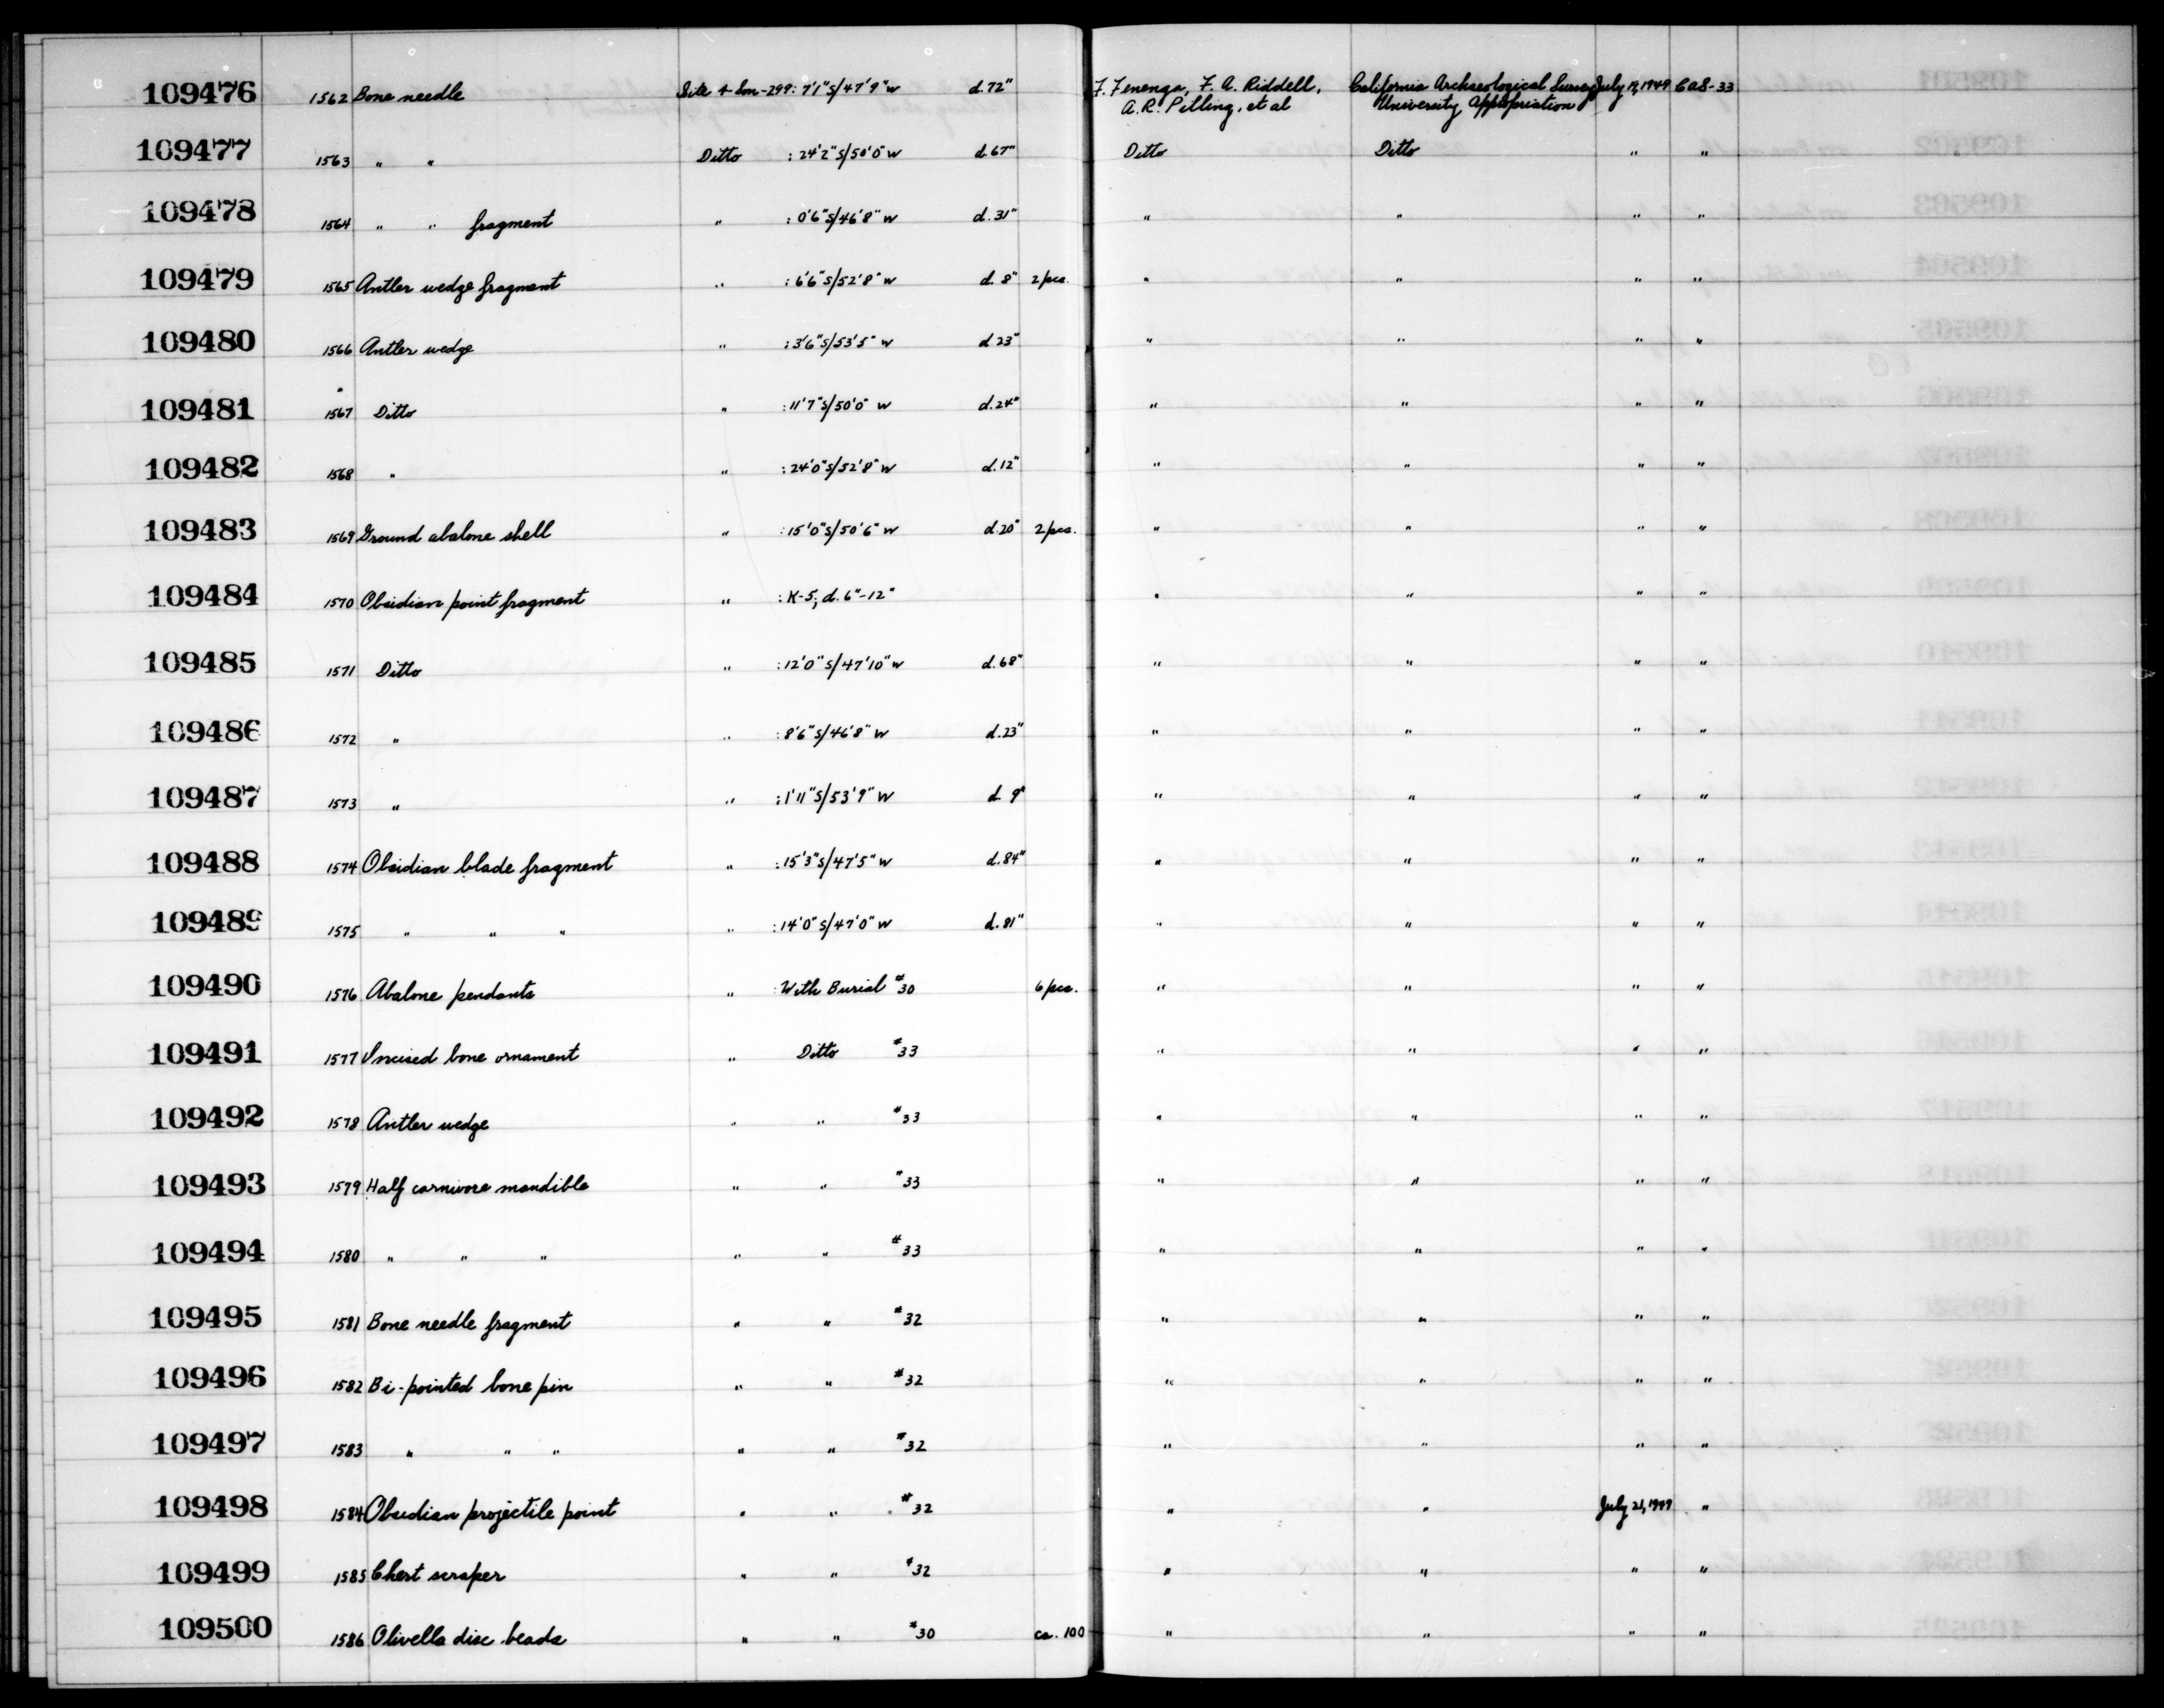 109476 1562 Bone needle Site 4-Son-299: 7'1"S/47'9"W d.72" F. Fenenga, F. A. Riddell, California Archaeological Survey July 19, 1949 CAS-33
A.R. Pilling, et al University Appropriation
109477 1563 " " Ditto : 24'2"S/50'0"W d.67" Ditto Ditto " "
109478 1564 " " fragment " : 0'6"S/46'8"W d.31" " " " "
109479 1565 Antler wedge fragment " : 6'6"S/52'8"W d. 8" 2 pcs. " " " "
109480 1566 Antler wedge " : 3'6"S/53'5"W d 23" " " " "
109481 1567 Ditto " : 11'7"S/50'0"W d.24" " " " "
109482 1568 " " : 24'0"S/52'8"W d.12" " " " "
109483 1569 Ground abalone shell " : 15'0"S/50'6"W d.20" 2 pcs. " " " "
109484 1570 Obsidian point fragment " : K-5; d. 6"-12" " " " "
109485 1571 Ditto " : 12'0"S/47'10"W d.68" " " " "
109486 1572 " " : 8'6"S/46'8"W d.23" " " " "
109487 1573 " " : 1'11"S/53'9"W d. 9" " " " "
109488 1574 Obsidian blade fragment " : 15'3"S/47'5"W d.84" " " " "
109489 1575 " " " " : 14'0"S/47'0"W d.81" " " " "
109490 1576 Abalone pendants " : With Burial #30 6 pcs. " " " "
109491 1577 Incised bone ornament " Ditto #33 " " " "
109492 1578 Antler wedge " " #33 " " " "
109493 1579 Half carnivore mandible " " #33 " " " "
109494 1580 " " " " " #33 " " " "
109495 1581 Bone needle fragment " " #32 " " " "
109496 1582 Bi-pointed bone pin " " #32 " " " "
109497 1583 " " " " " #32 " " " "
109498 1584 Obsidian projectile point " " #32 " " July 21, 1949 "
109499 1585 Chert scraper " " #32 " " " "
109500 1586 Olivella disc beads " " #30 ca. 100 " " " "